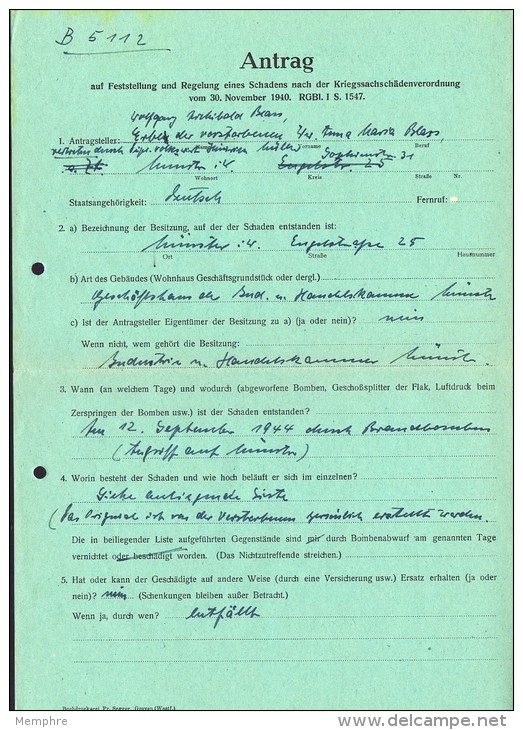 B 5112
Antrag
auf Feststellung und Regelung eines Schadens nach der Kriegssachschädenverordnung
vom 30. November 1940. RGBl. I S. 1547.
Wolfgang Archibald Blass,
1. Antragsteller: Erben der verstorbenen Frau Anna Maria Blass,
Vorname Beruf
vertreten durch Dipl. Volkswirt Heinrich Müller, Sophienstr 31
Münster i.W. Engelstr. 25
Wohnort Kreis Straße Nr.
Staatsangehörigkeit: Deutsch Fernruf:
2. a) Bezeichnung der Besitzung, auf der der Schaden entstanden ist:
Münster i.W. Engelstraße 25
Ort Straße Hausnummer
b) Art des Gebäudes (Wohnhaus Geschäftsgrundstück oder dergl.)
Geschäftshaus der Ind. u. Handelskammer Münster
c) Ist der Antragsteller Eigentümer der Besitzung zu a) (ja oder nein)? nein
Wenn nicht, wem gehört die Besitzung:
Industrie u. Handelskammer Münster.
3. Wann (an welchem Tage) und wodurch (abgeworfene Bomben, Geschoßsplitter der Flak, Luftdruck beim
Zerspringen der Bomben usw.) ist der Schaden entstanden?
Am 12. September 1944 durch Brandbomben
(Angriff auf Münster)
4. Worin besteht der Schaden und wie hoch beläuft er sich im einzelnen?
Siehe anliegende Liste
(Das Original ist von der Verstorbenen persönlich erstellt worden.
Die in beiliegender Liste aufgeführten Gegenstände sind mir durch Bombenabwurf am genannten Tage
vernichtet oder beschädigt worden. (Das Nichtzutreffende streichen.)
5. Hat oder kann der Geschädigte auf andere Weise (durch eine Versicherung usw.) Ersatz erhalten (ja oder
nein)? nein (Schenkungen bleiben außer Betracht.)
Wenn ja, durch wen? entfällt
Buchdruckerei Fr. Greven (Westf.)
Memphre
delcampe.net